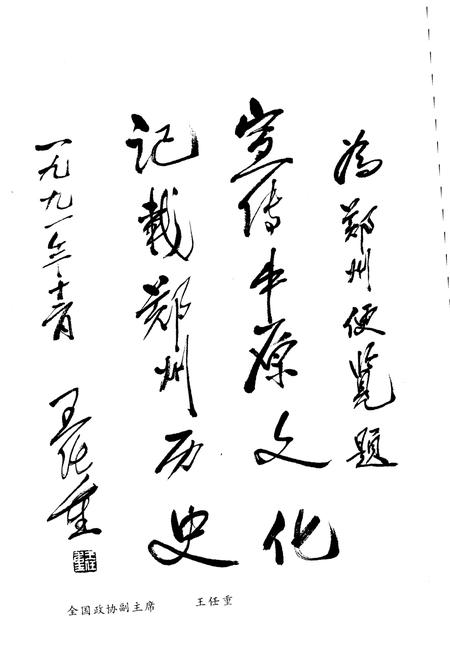 为郑州便览题
宣传中原文化
记载郑州历史
一九九一年十一月
王任重
全国政协副主席 王任重